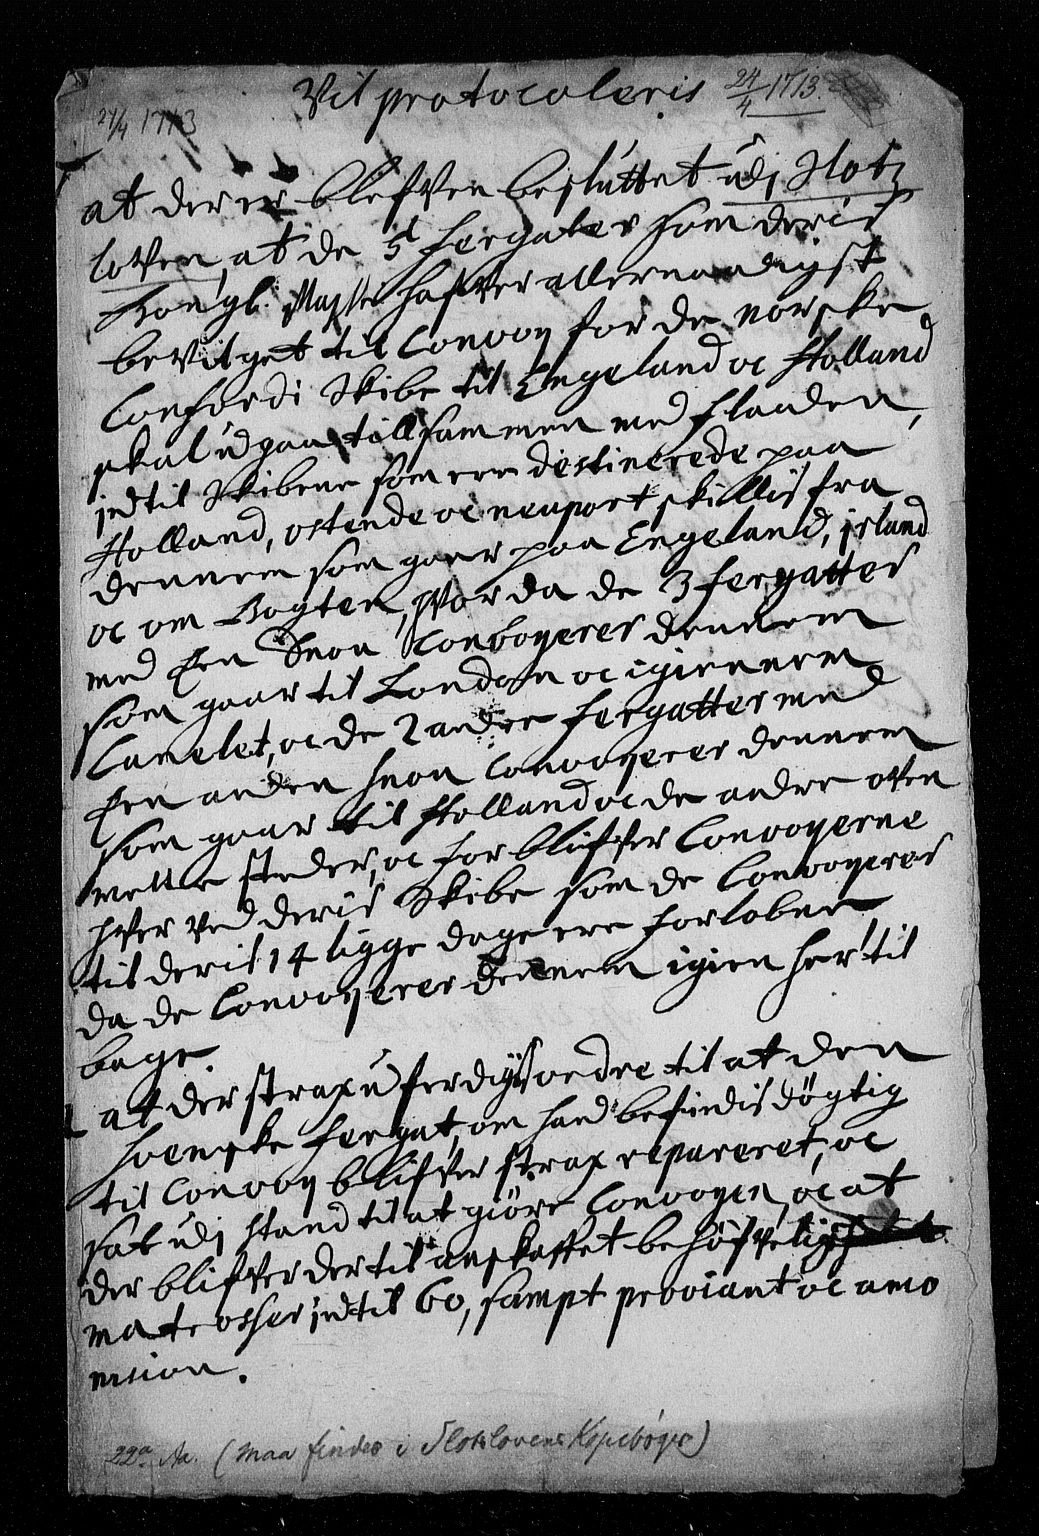 Vil protocoleris 24/4 1713
24/4 1713
at der er blefven besluttet udj Slotz
loven, at de 5 fergater som deris
Kongl. Maysts hafver allernaadigst
bevilget til Convoy for de norske
Confordi Skibe til Engeland oc Holland
skal udgaa tillsammen med flaaden,
indtil Skibene som ere destinerede paa
Holland, ostende oc neuport skillis fra
dennem som gaar paa Engeland, jrland
oc om Bogten, hvor da de 3 fergatter
med Een Snou Convoyerer dennem
som gaar til London oc igiennem
Canelet, oc de 2 andre fergatter med
Een anden snou Convoyerer dennem
som gaar til Holland oc de andre oven
melte steder, oc forblifver Convoyerne
hver ved deris Skibe som de Convoyerer
til deris 14 ligge dage ere forlobne,
da de Convoyerer dennem igien her til
bage.
at der strax uferdigst ordre til at den
svenske fergat, om hand befindis døgtig
til Convoy blifver strax repareret, oc
sat udj stand til at giöre Convoyen, oc at
der blifver dertil anskaffet behöfvelig
matrosser indtil 60, sampt proviant oc amo
nision.
22a Aa. (maa findes i Slotslovens Kopibøge)